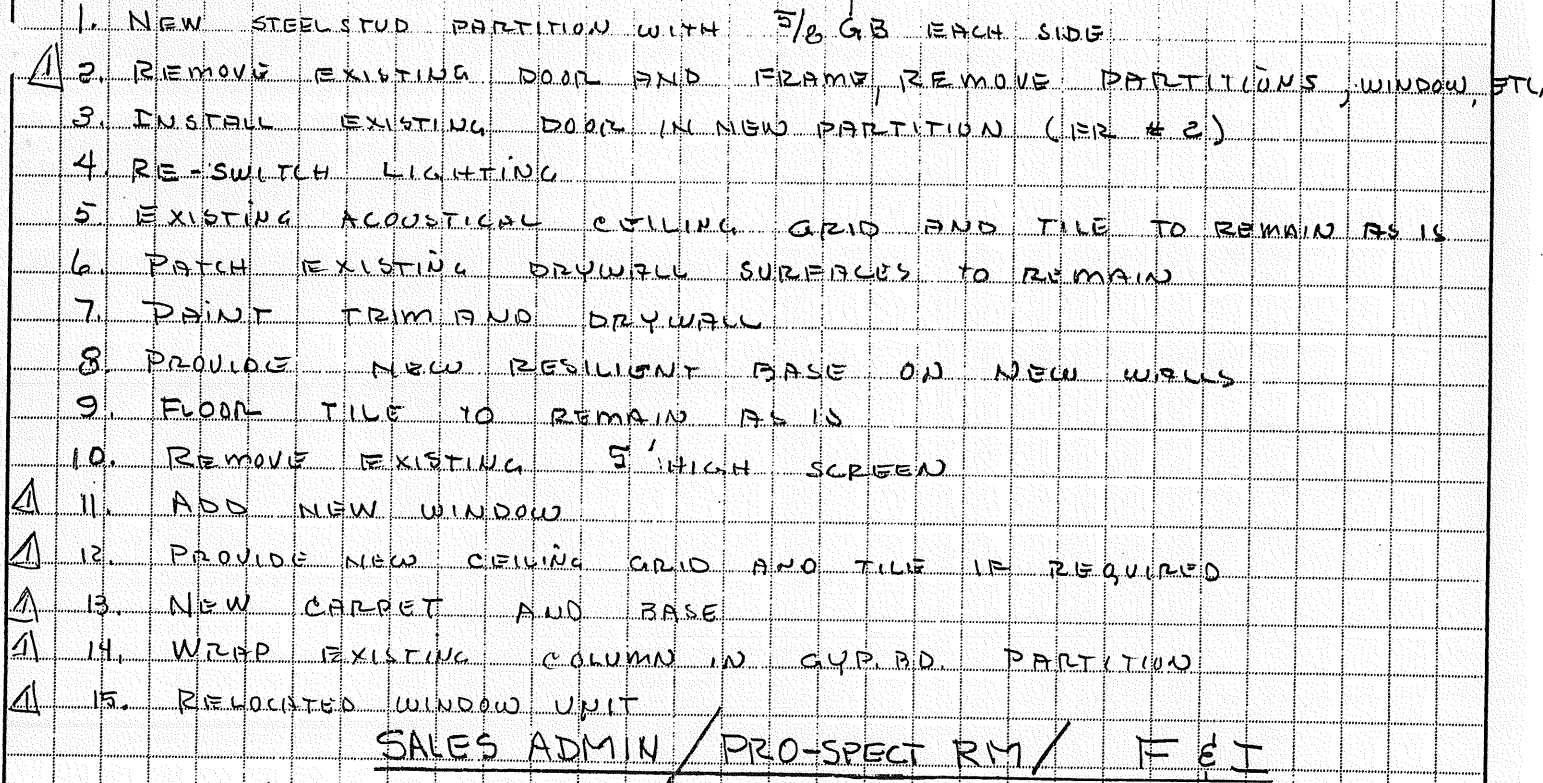 1. NEW STEEL STUD PARTITION WITH 5/8 GB EACH SIDE
1 2. REMOVE EXISTING DOOR AND FRAME, REMOVE PARTITIONS, WINDOW, ETC,
3. INSTALL EXISTING DOOR IN NEW PARTITION (ER # 2)
4. RE-SWITCH LIGHTING
5 EXISTING ACOUSTICAL CEILING GRID AND TILE TO REMAIN AS IS
6. PATCH EXISTING DRYWALL SURFACES TO REMAIN
7. PAINT TRIM AND DRYWALL
8. PROVIDE NEW RESILIENT BASE ON NEW WALLS
9. FLOOR TILE TO REMAIN AS IS
10. REMOVE EXISTING 5' HIGH SCREEN
1 11. ADD NEW WINDOW
1 12. PROVIDE NEW CEILING GRID AND TILE IF REQUIRED
1 13. NEW CARPET AND BASE
1 14. WRAP EXISTING COLUMN IN GYP. BD. PARTITION
1 15. RELOCATED WINDOW UNIT
SALES ADMIN / PRO-SPECT RM / F & I